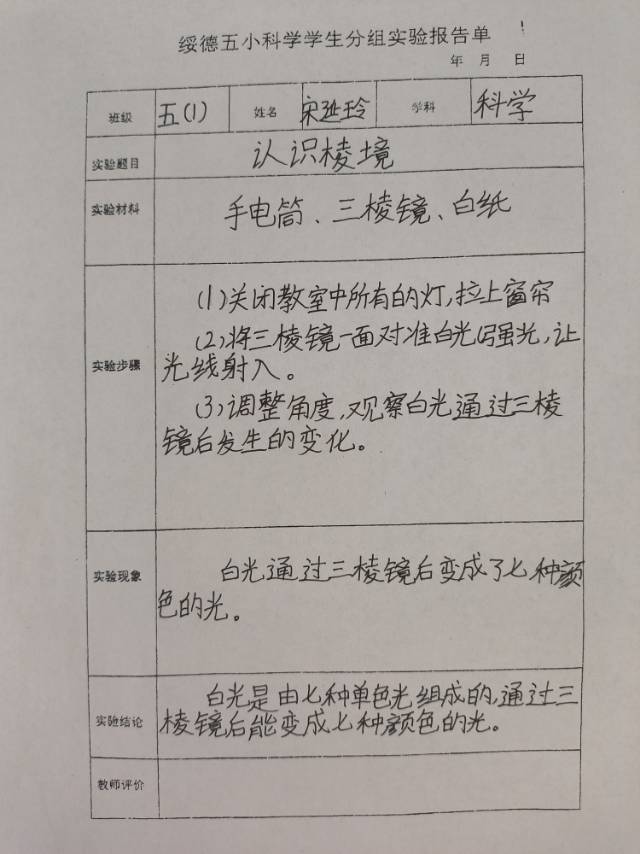 绥德五小科学学生分组实验报告单
年 月 日
班级 五(1) 姓名 宋延玲 学科 科学
实验题目 认识棱境
实验材料 手电筒、三棱镜、白纸
实验步骤
(1)关闭教室中所有的灯,拉上窗帘
(2)将三棱镜一面对准白光的强光,让
光线射入。
(3)调整角度,观察白光通过三棱
镜后发生的变化。
实验现象
白光通过三棱镜后变成了七种颜
色的光。
实验结论
白光是由七种单色光组成的,通过三
棱镜后能变成七种颜色的光。
教师评价